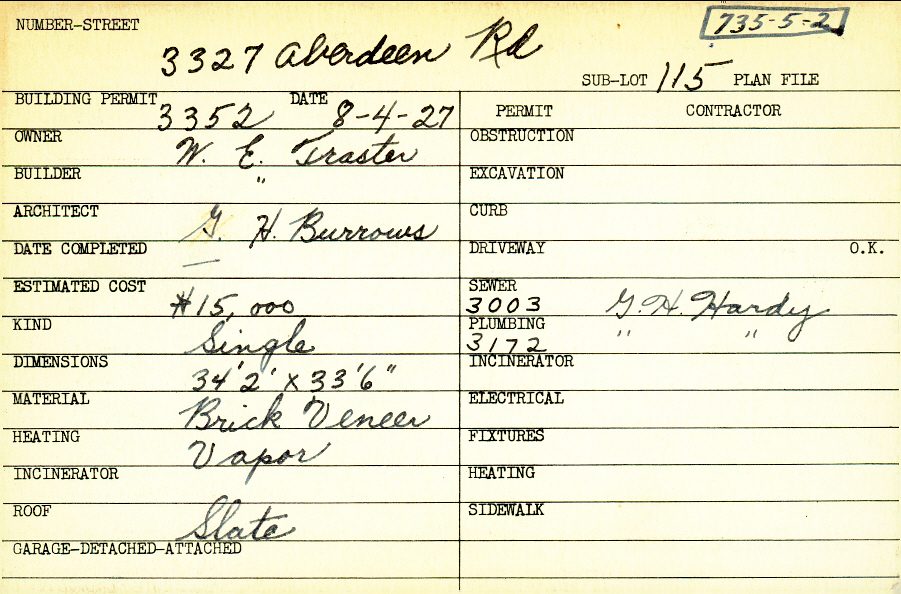 NUMBER-STREET
735-5-2
3327 Aberdeen Rd
SUB-LOT 115 PLAN FILE
BUILDING PERMIT 3352 DATE 8-4-27
OWNER W. E. Traster
BUILDER "
ARCHITECT G. H. Burrows
DATE COMPLETED —
ESTIMATED COST $15,000
KIND Single
DIMENSIONS 34'2" X 33'6"
MATERIAL Brick Veneer
HEATING Vapor
INCINERATOR
ROOF Slate
GARAGE-DETACHED-ATTACHED
PERMIT CONTRACTOR
OBSTRUCTION
EXCAVATION
CURB
DRIVEWAY O.K.
SEWER
3003 G. H. Hardy
PLUMBING
3172 " "
INCINERATOR
ELECTRICAL
FIXTURES
HEATING
SIDEWALK